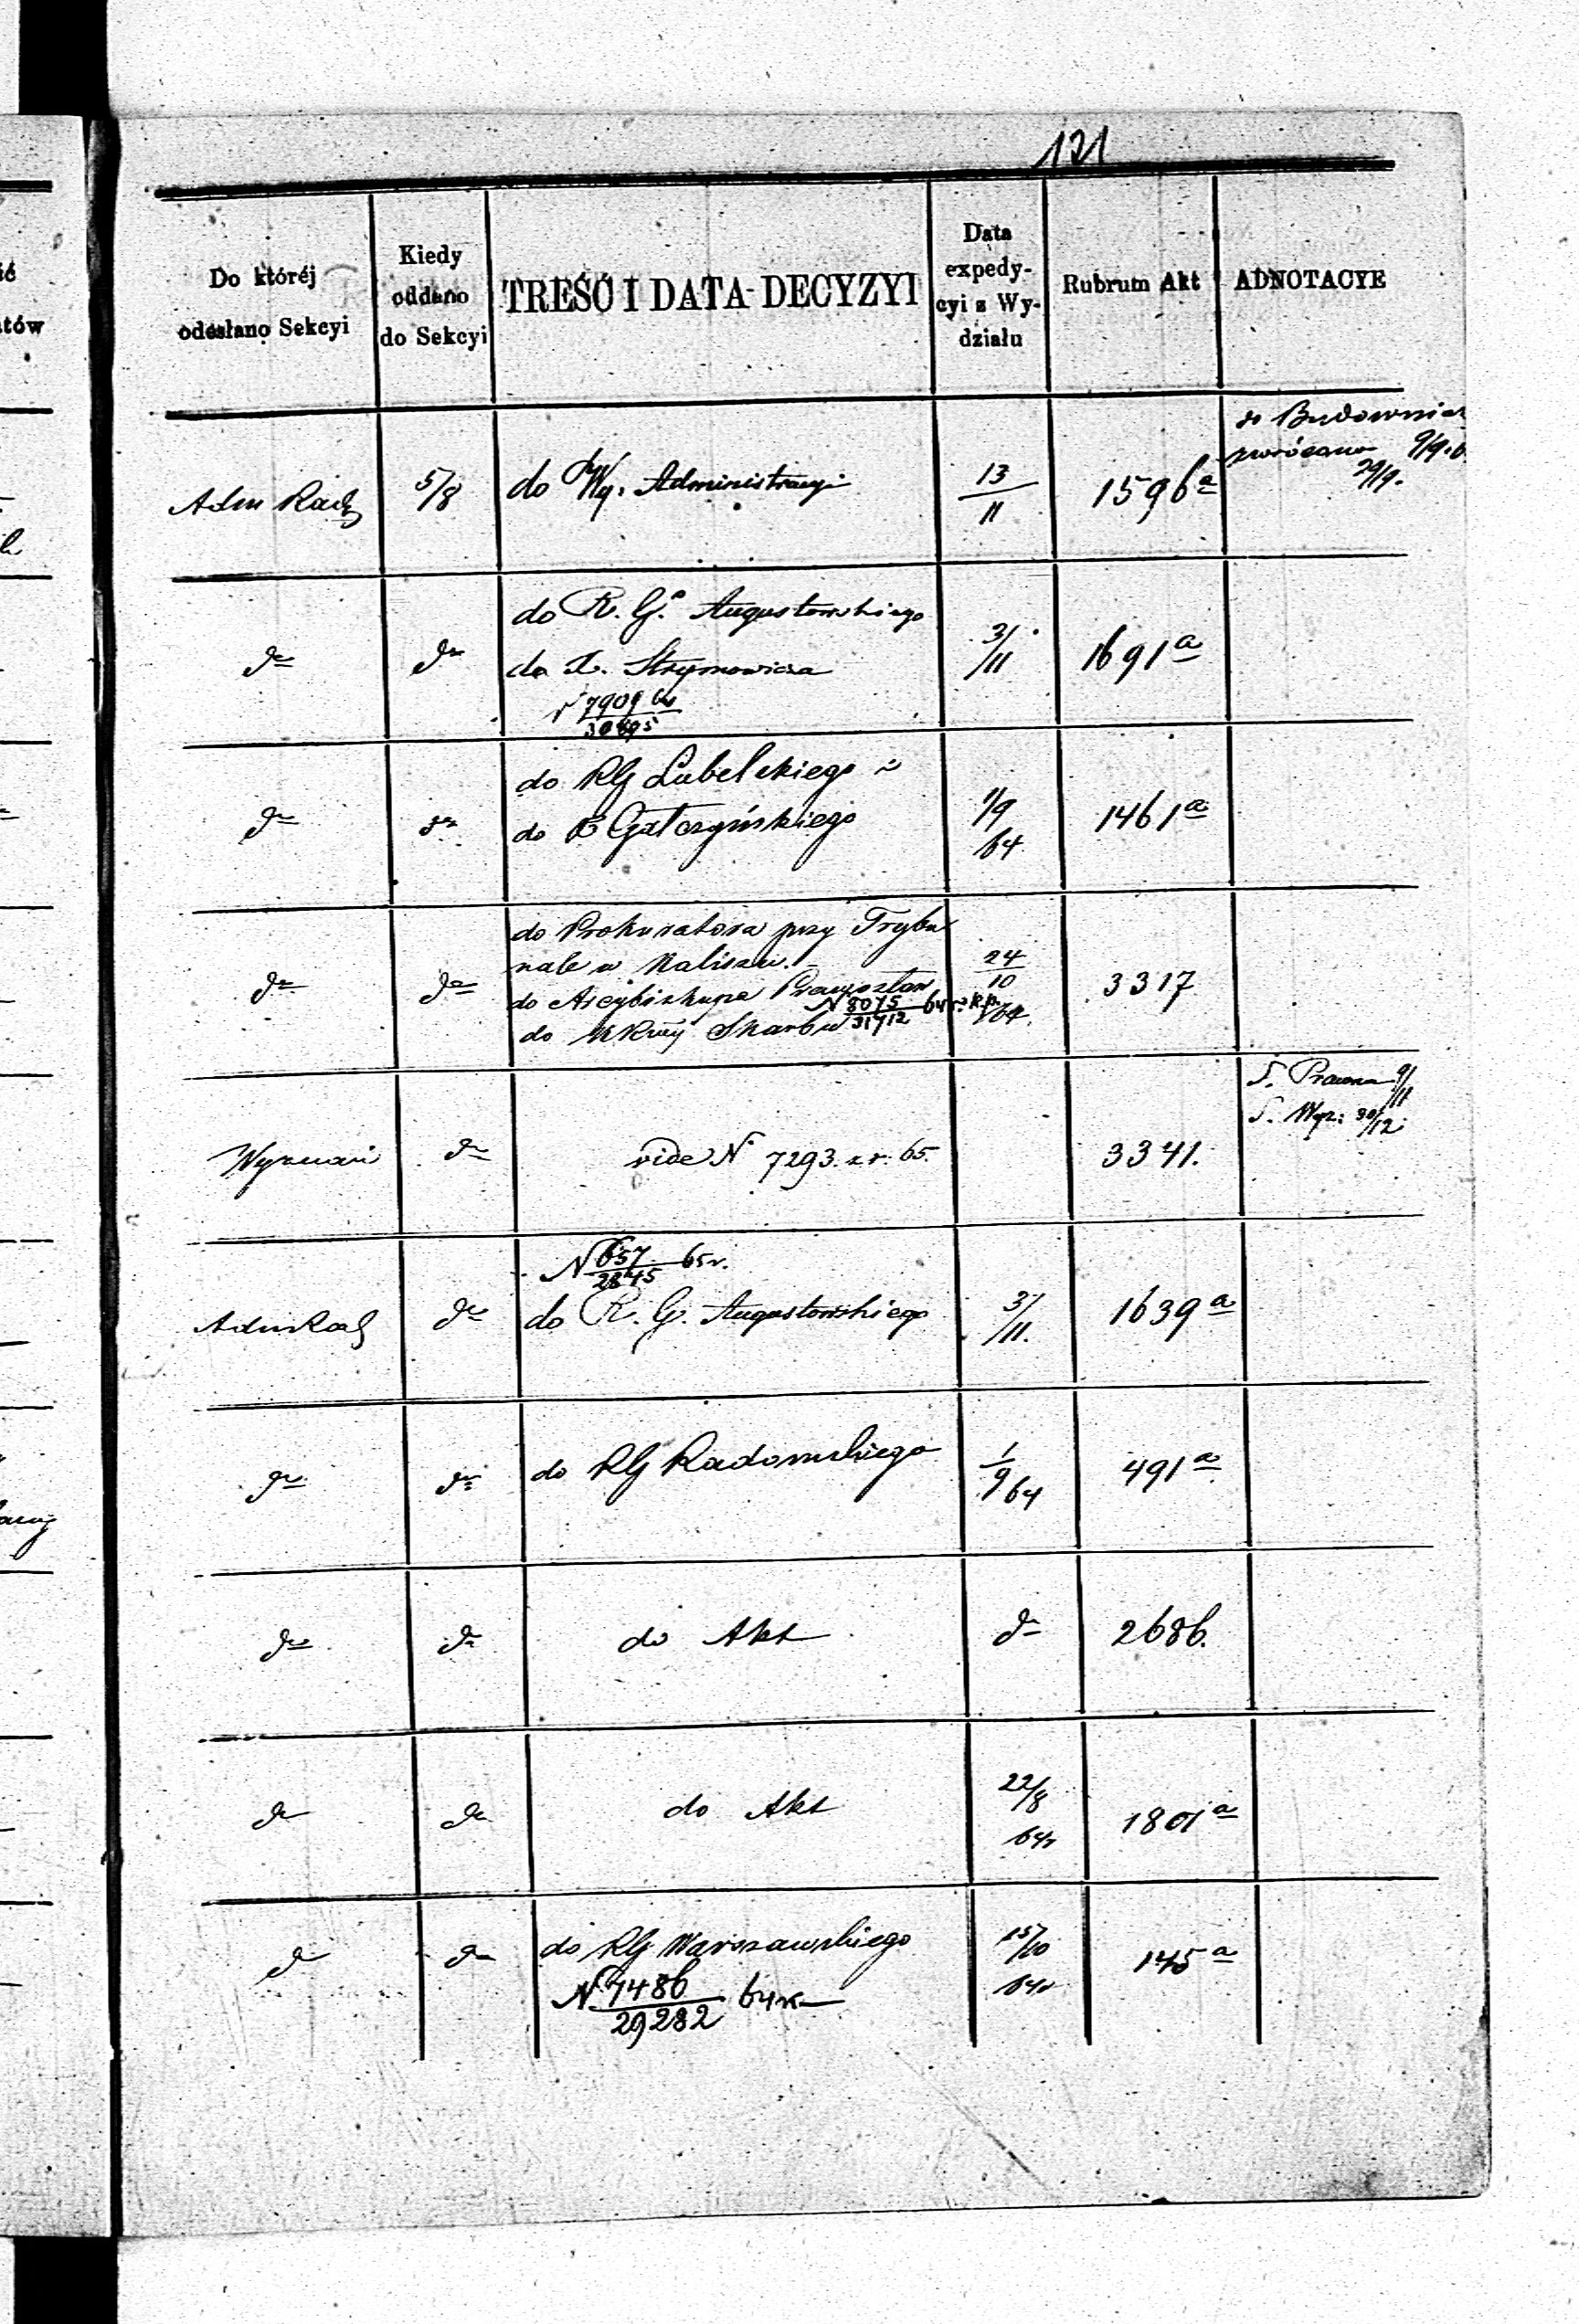 121
Do któréj
odesłano Sekcyi
Kiedy
oddano
do Sekcyi
TREŚĆ I DATA DECYZYI
Data
expedy-
cyi z Wy-
działu
Rubrum Akt
ADNOTACYE
Adm Rady
5/8
do Wy. Administracyi
13/11
1596a
do Budownicz
zwrócono 9/9. 6
29/9.
do
do
do R. G. Augustowskiego
do X.
N 7909 64
3/11
1691a
do
do
do RG Lubelskiego i
do X Gałczyńskiego
1/9
64
1461a
do
do
do Prokuratora przy Trybu
nale w Kaliszu.
do Arcybiskupa
do Skarbu
N 8075/31712 64 r.
24/10
64.
3317
Wyznań
do
vide N 7293. z r. 65.
3341.
S. Prawna 9/11
S. Wyz: 30/12
Adm Rady
do
N 657/2845 65 r.
do R. G. Augustowskiego
3/11.
1639a
do
do
do RG Radomskiego
1/9 64
491a
do
do
do Akt
do
2686.
do
do
do Akt
22/8
64r
1801a
do
do
do RG Warszawskiego
N 7486/29282 64 r
15/10
64r
145a